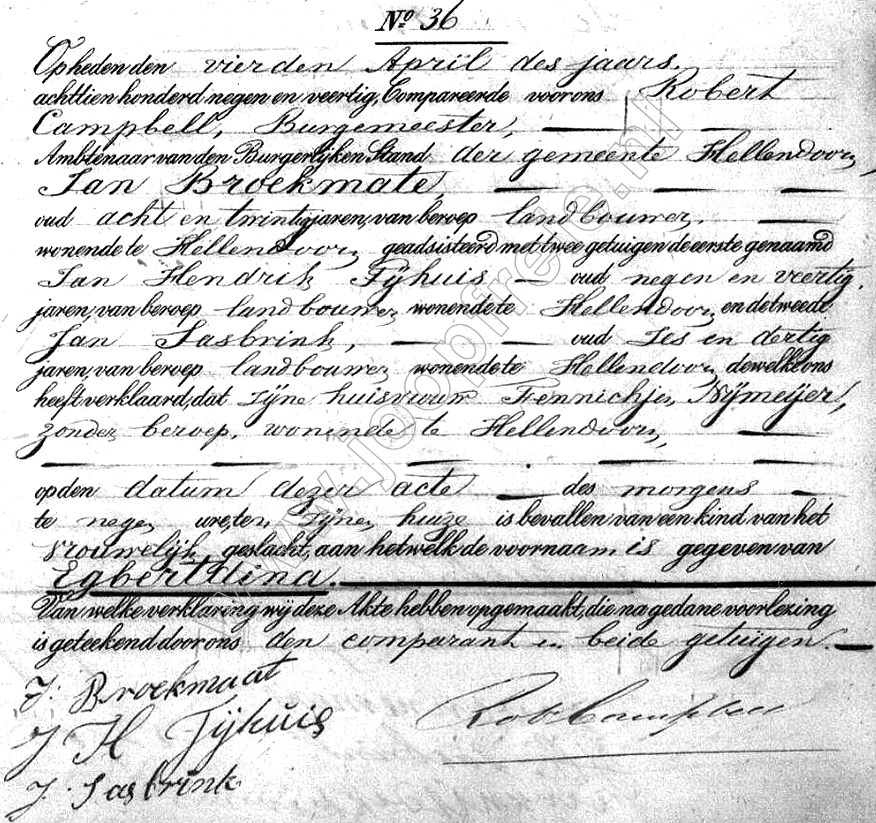 No 36
Op heden den vierden April des jaars
achttien honderd negen en veertig, Compareerde voor ons Robert
Campbell, Burgemeester,
Ambtenaar van den Burgerlijken Stand der gemeente Hellendoorn,
Jan Broekmate,
oud acht en twintig jaren, van beroep landbouwer,
wonende te Hellendoorn geadsisteerd met twee getuigen de eerste genaamd
Jan Hendrik Tijhuis, oud negen en veertig,
jaren, van beroep landbouwer wonende te Hellendoorn en de tweede
Jan Sasbrink, oud Ses en dertig
jaren, van beroep landbouwer wonende te Hellendoorn, dewelke ons
heeft verklaard, dat zijne huisvrouw Fennichjen Nijmeijer,
zonder beroep, wonende te Hellendoorn,
op den datum dezer acte des morgens
te negen ure, ten zijnen huize is bevallen van een kind van het
vrouwelijk geslacht, aan hetwelk de voornaam is gegeven van
Egberttdina.
Van welke verklaring wij deze Akte hebben opgemaakt, die na gedane voorlezing
is geteekend door ons den comparant en beide getuigen.
J. Broekmaat
J H Tijhuis
J. Sasbrink
Rob Campbell
www.joopfreie.nl